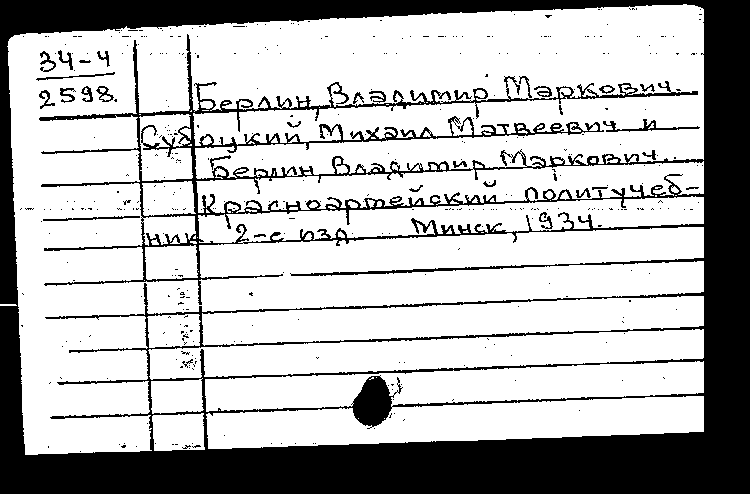 34-4
2598.
Берлин, Владимир Маркович.
Субоцкий, Михаил Матвеевич и
Берлин, Владимир Маркович..
Красноармейский политучеб-
ник. 2-е изд Минск, 1934.